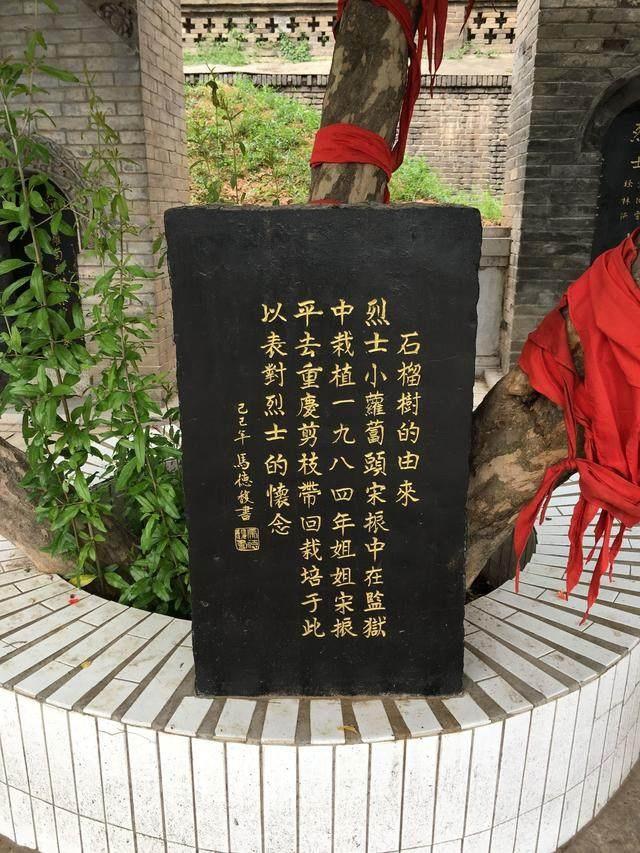 石榴樹的由來
烈士小蘿蔔頭宋振中在監獄
中栽植一九八四年姐姐宋振
平去重慶剪枝帶回栽培于此
以表對烈士的懷念
己巳年 馬德 書
烈士